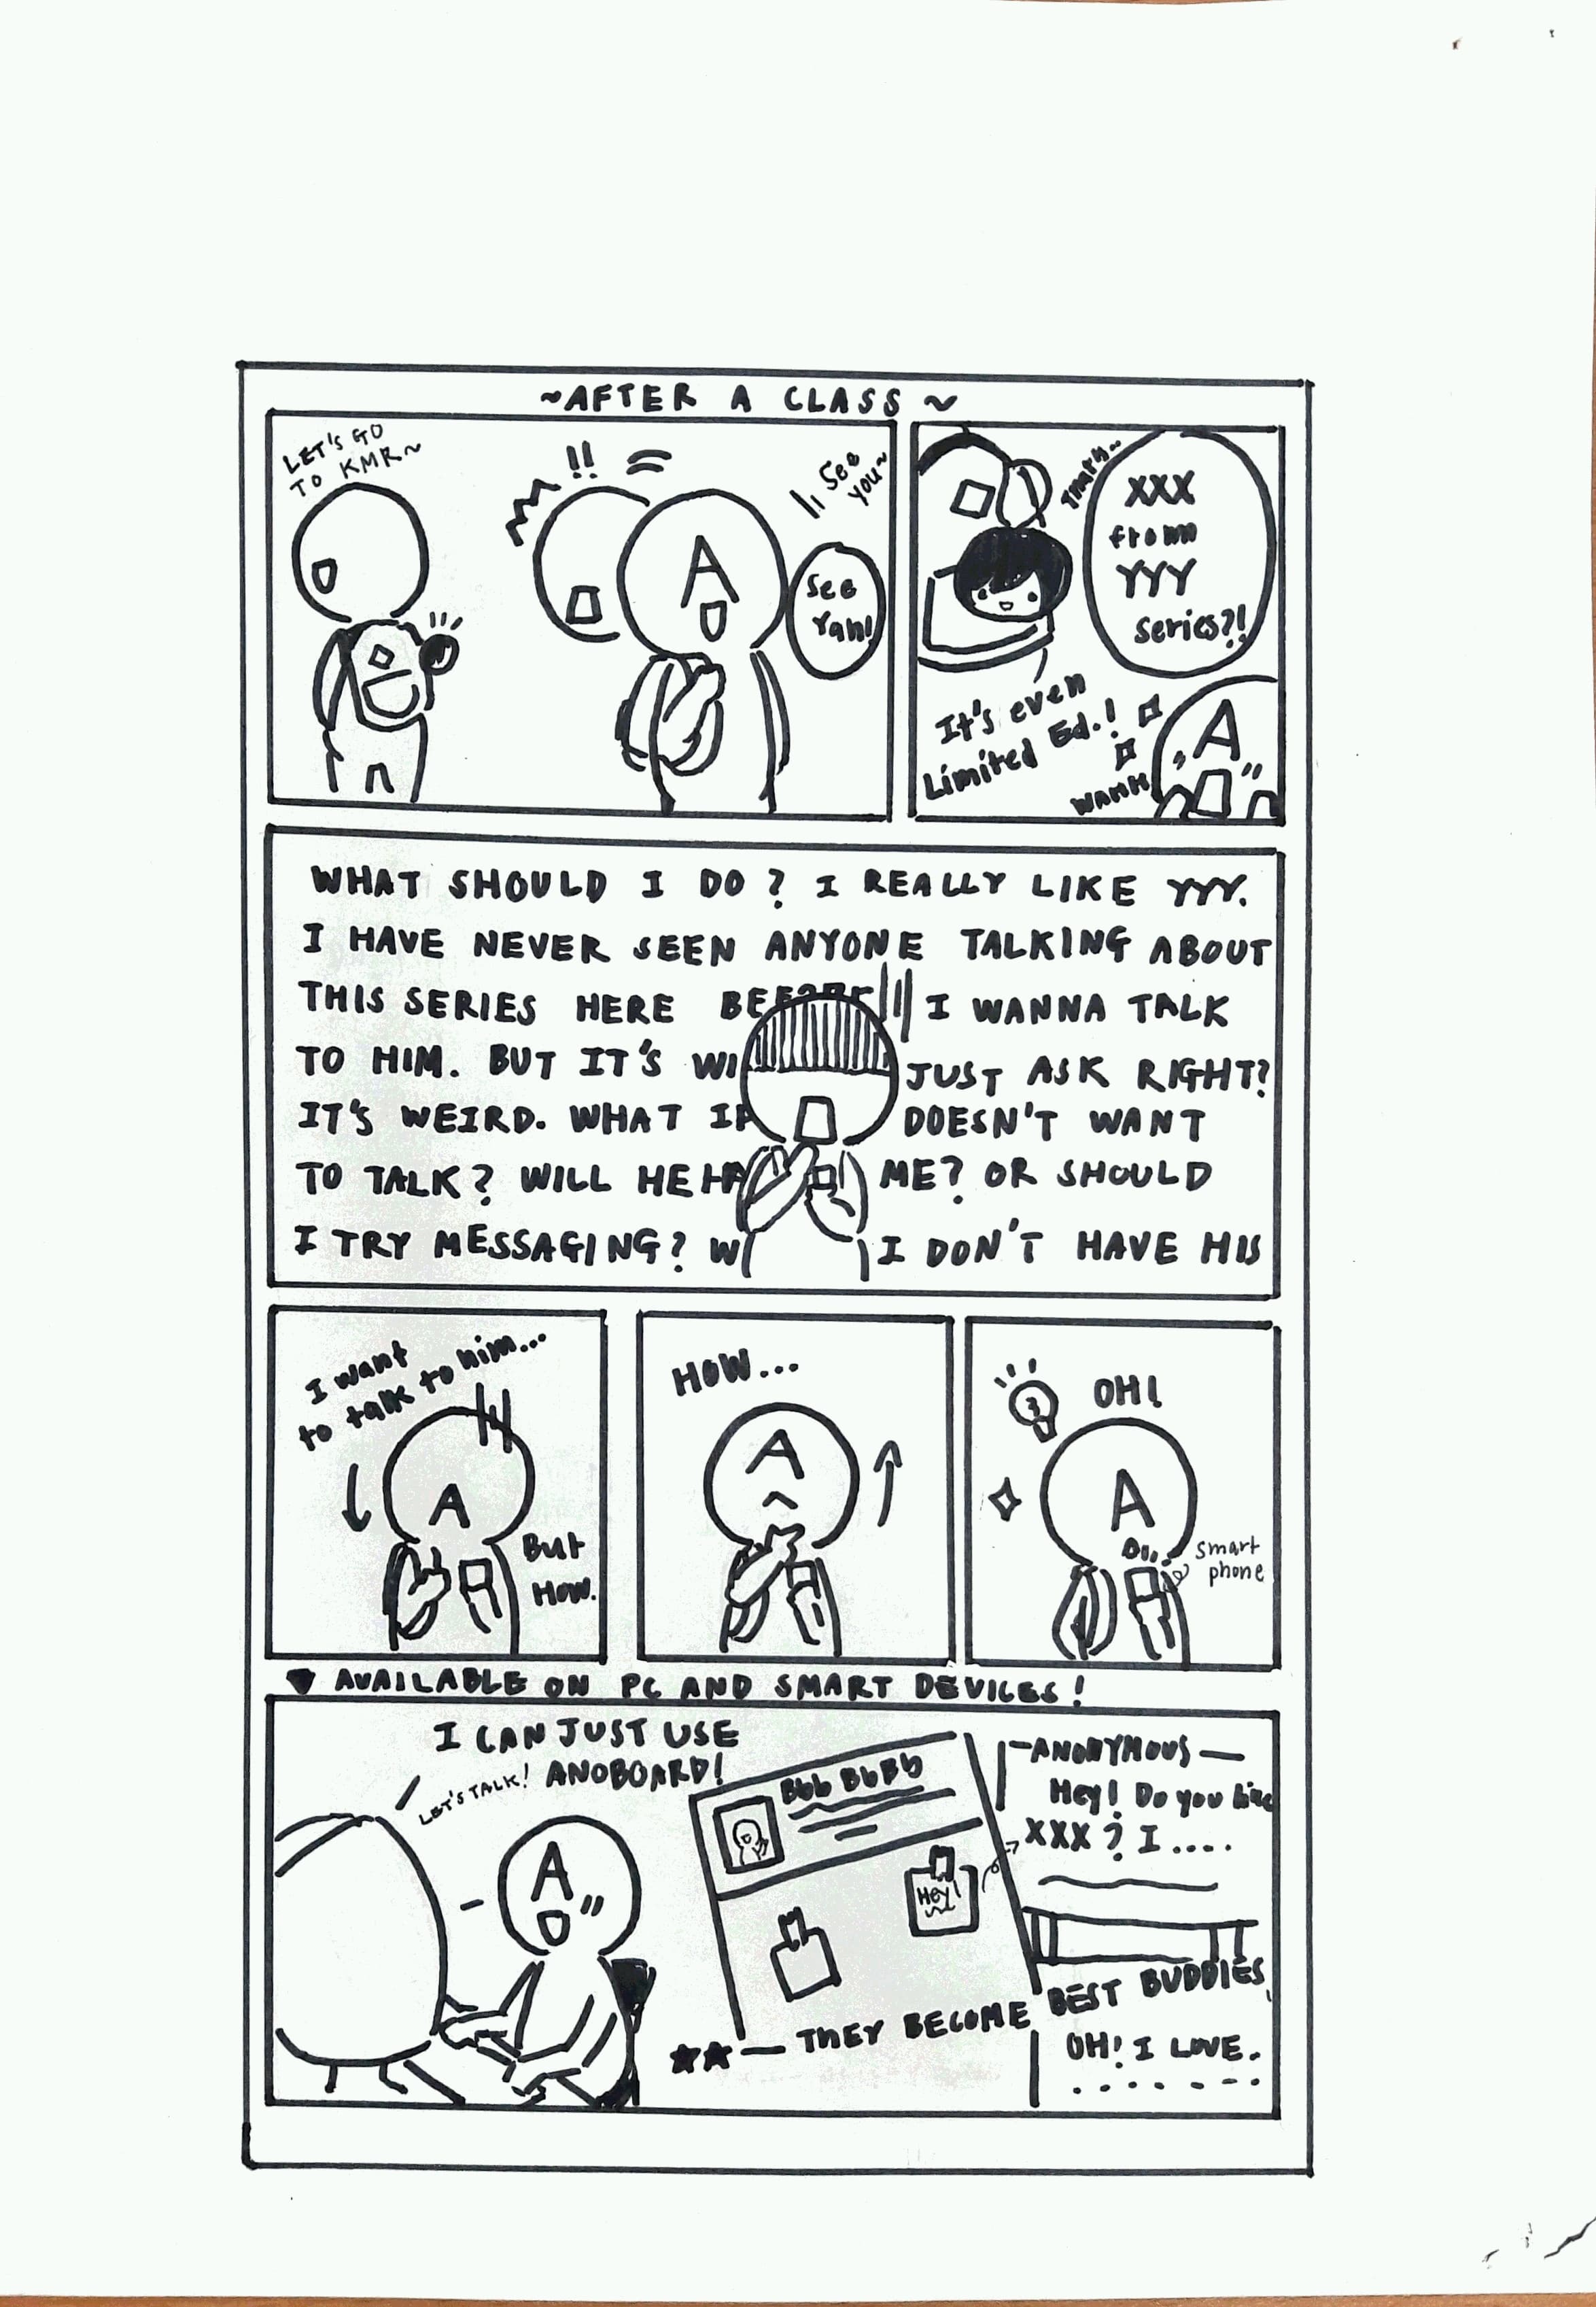 ~AFTER A CLASS~
LET'S GO
TO KMR~
!!
A
See
you~
See
Yah!
XXX
from
YYY
series?!
It's even
Limited Ed.!
WAHH
A
WHAT SHOULD I DO? I REALLY LIKE YYY.
I HAVE NEVER SEEN ANYONE TALKING ABOUT
THIS SERIES HERE BEFORE I WANNA TALK
TO HIM. BUT IT'S WI JUST ASK RIGHT?
IT'S WEIRD. WHAT IF DOESN'T WANT
TO TALK? WILL HE HA ME? OR SHOULD
I TRY MESSAGING? W I DON'T HAVE HIS
I want
to talk to him...
A
But
How.
HOW...
A
OH!
A
smart
phone
▼ AVAILABLE ON PC AND SMART DEVICES!
I CAN JUST USE
ANOBOARD!
LET'S TALK!
A
Bbb BbBb
Hey!
-ANONYMOUS-
Hey! Do you like
XXX? I....
★★— THEY BECOME BEST BUDDIES
OH! I LOVE.
.......